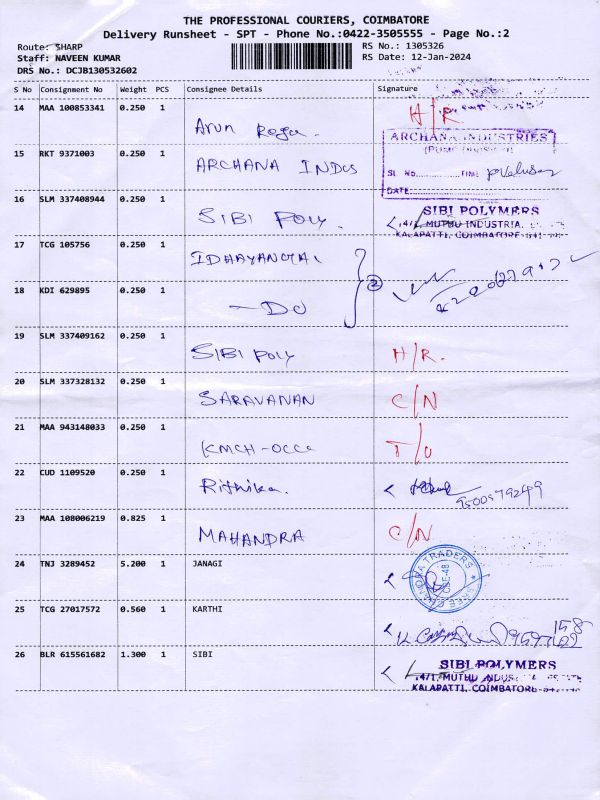 THE PROFESSIONAL COURIERS, COIMBATORE
Delivery Runsheet - SPT - Phone No.:0422-3505555 - Page No.:2
Route: SHARP
Staff: NAVEEN KUMAR
DRS No.: DCJB130532602
RS No.: 1305326
RS Date: 12-Jan-2024
S No Consignment No Weight PCS Consignee Details Signature
14 MAA 100853341 0.250 1 Arun H/R
15 RKT 9371003 0.250 1 ARCHANA INDUS
ARCHANA INDUSTRIES
SL NO.
DATE
16 SLM 337408944 0.250 1 SIBI POLY.
SIBI POLYMERS
4/1, MUTHU INDUSTRIA
KALAPATTI, COIMBATORE
17 TCG 105756 0.250 1 2
18 KDI 629895 0.250 1 - DO
19 SLM 337409162 0.250 1 SIBI POLY H/R.
20 SLM 337328132 0.250 1 SARAVANAN C/N
21 MAA 943148033 0.250 1 KMCH-OCCC
22 CUD 1109520 0.250 1 Rithika.
23 MAA 108006219 0.825 1 MAHANDRA C/N
24 TNJ 3289452 5.200 1 JANAGI
SREE CHANDRA TRADERS
CBE-48
25 TCG 27017572 0.560 1 KARTHI
26 BLR 615561682 1.300 1 SIBI
SIBI POLYMERS
4/1, MUTHU INDUS
KALAPATTI, COIMBATORE